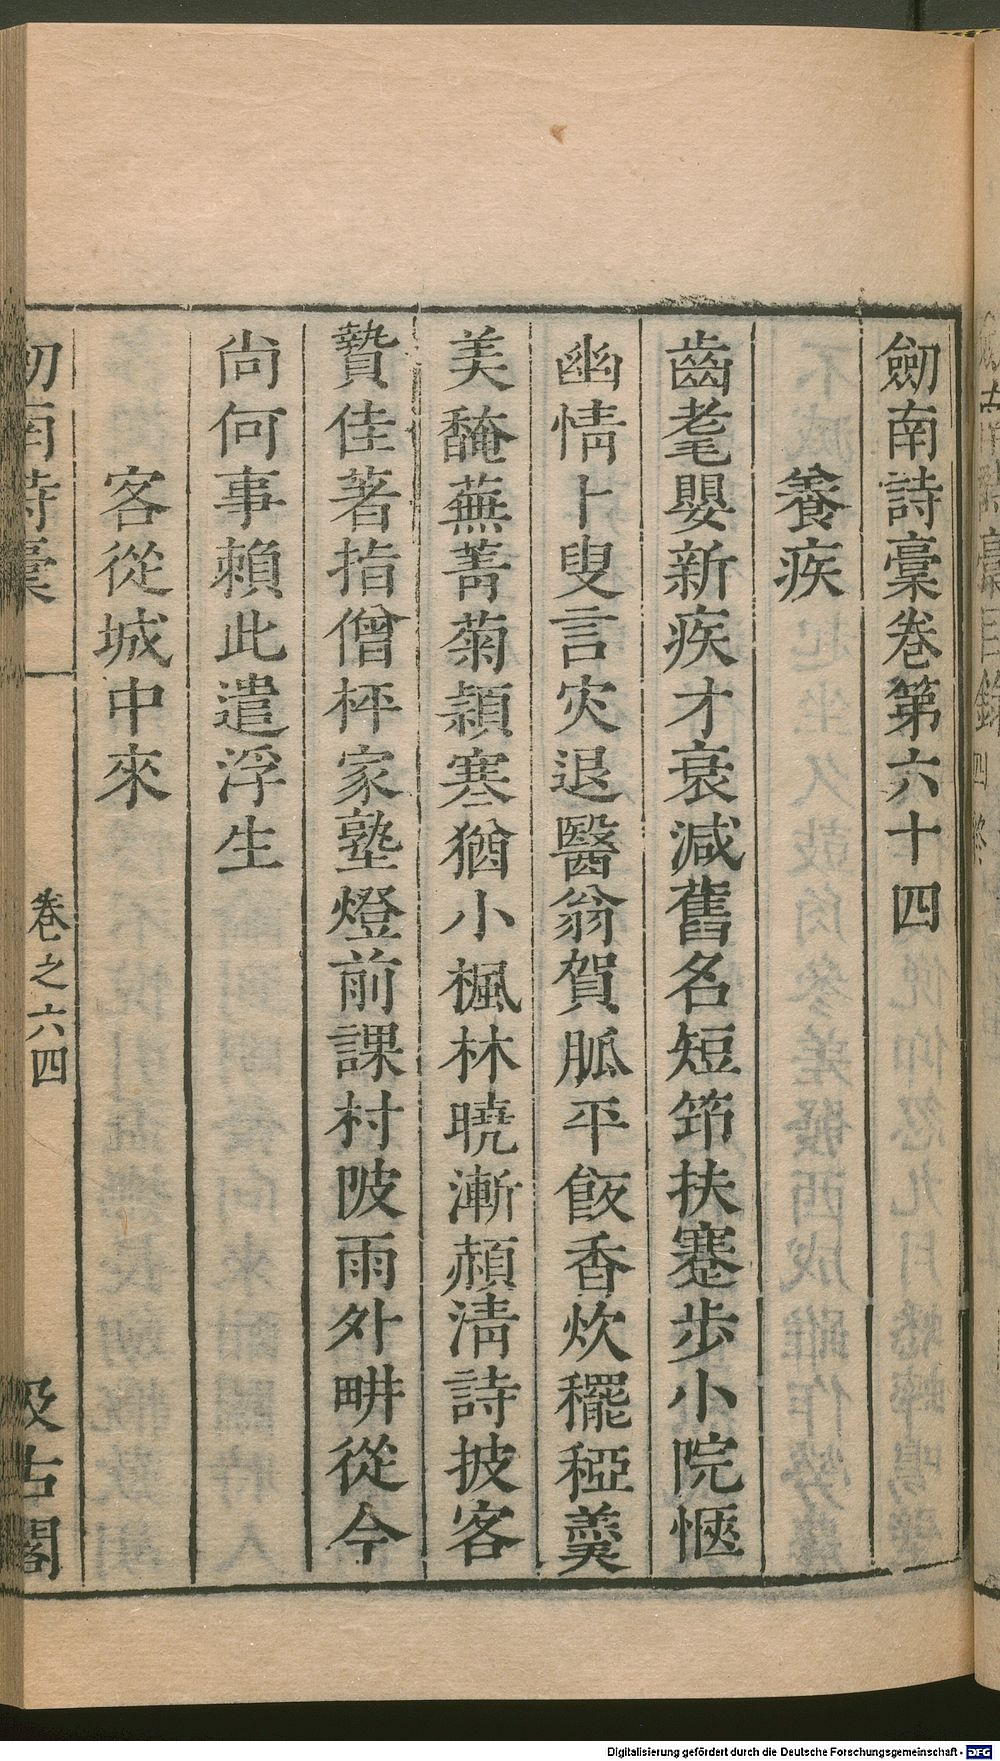 劒南詩稾卷第六十四
養疾
齒耄嬰新疾才衰減舊名短筇扶蹇步小院愜
幽情卜叟言灾退醫翁賀脈平飯香炊䆉稏羹
美馣蕪菁菊穎寒猶小楓林曉漸赬淸詩披客
贄佳著指僧枰家塾燈前課村陂雨外畊從今
尙何事賴此遣浮生
客從城中來
劒南詩稾
卷之六四
汲古閣
Digitalisierung gefördert durch die Deutsche Forschungsgemeinschaft - DFG